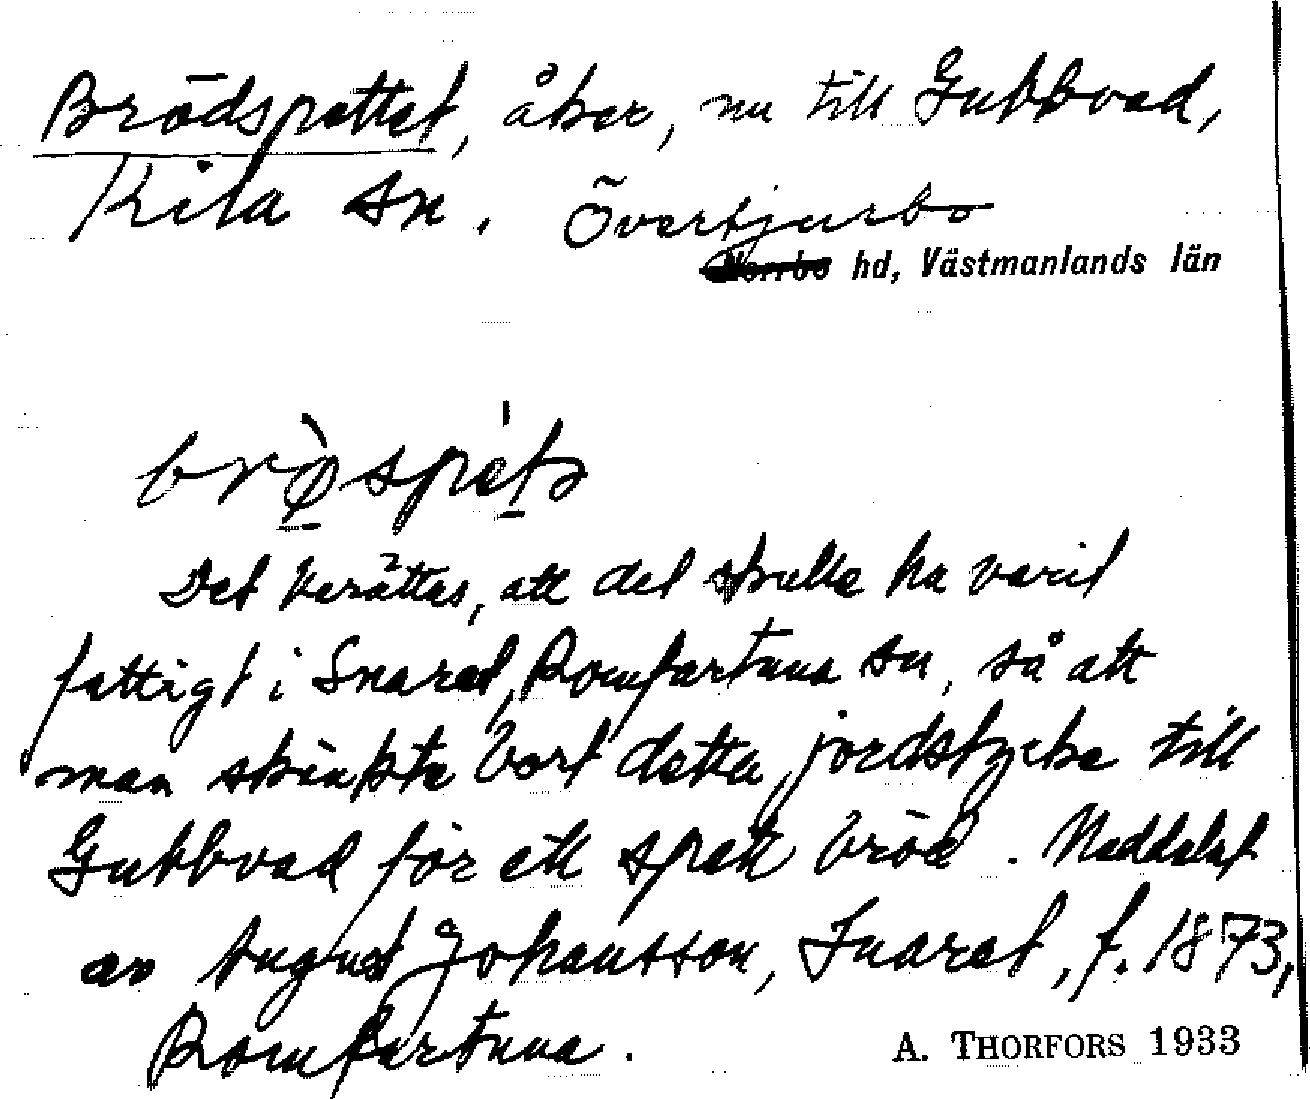 Brödspettet, åker, nu till Gubbvad,
Kila sn. Övertjurbo
Norrbo hd, Västmanlands län
brø̀spètə
Det berättas, att det skulle ha varit
fattigt i Snaret, Romfartuna sn, så att
man skänkte bort detta jordstycke till
Gubbvad för ett spett bröd. Meddelat
av August Johansson, Snaret, f. 1873,
Romfartuna.
A. THORFORS 1933